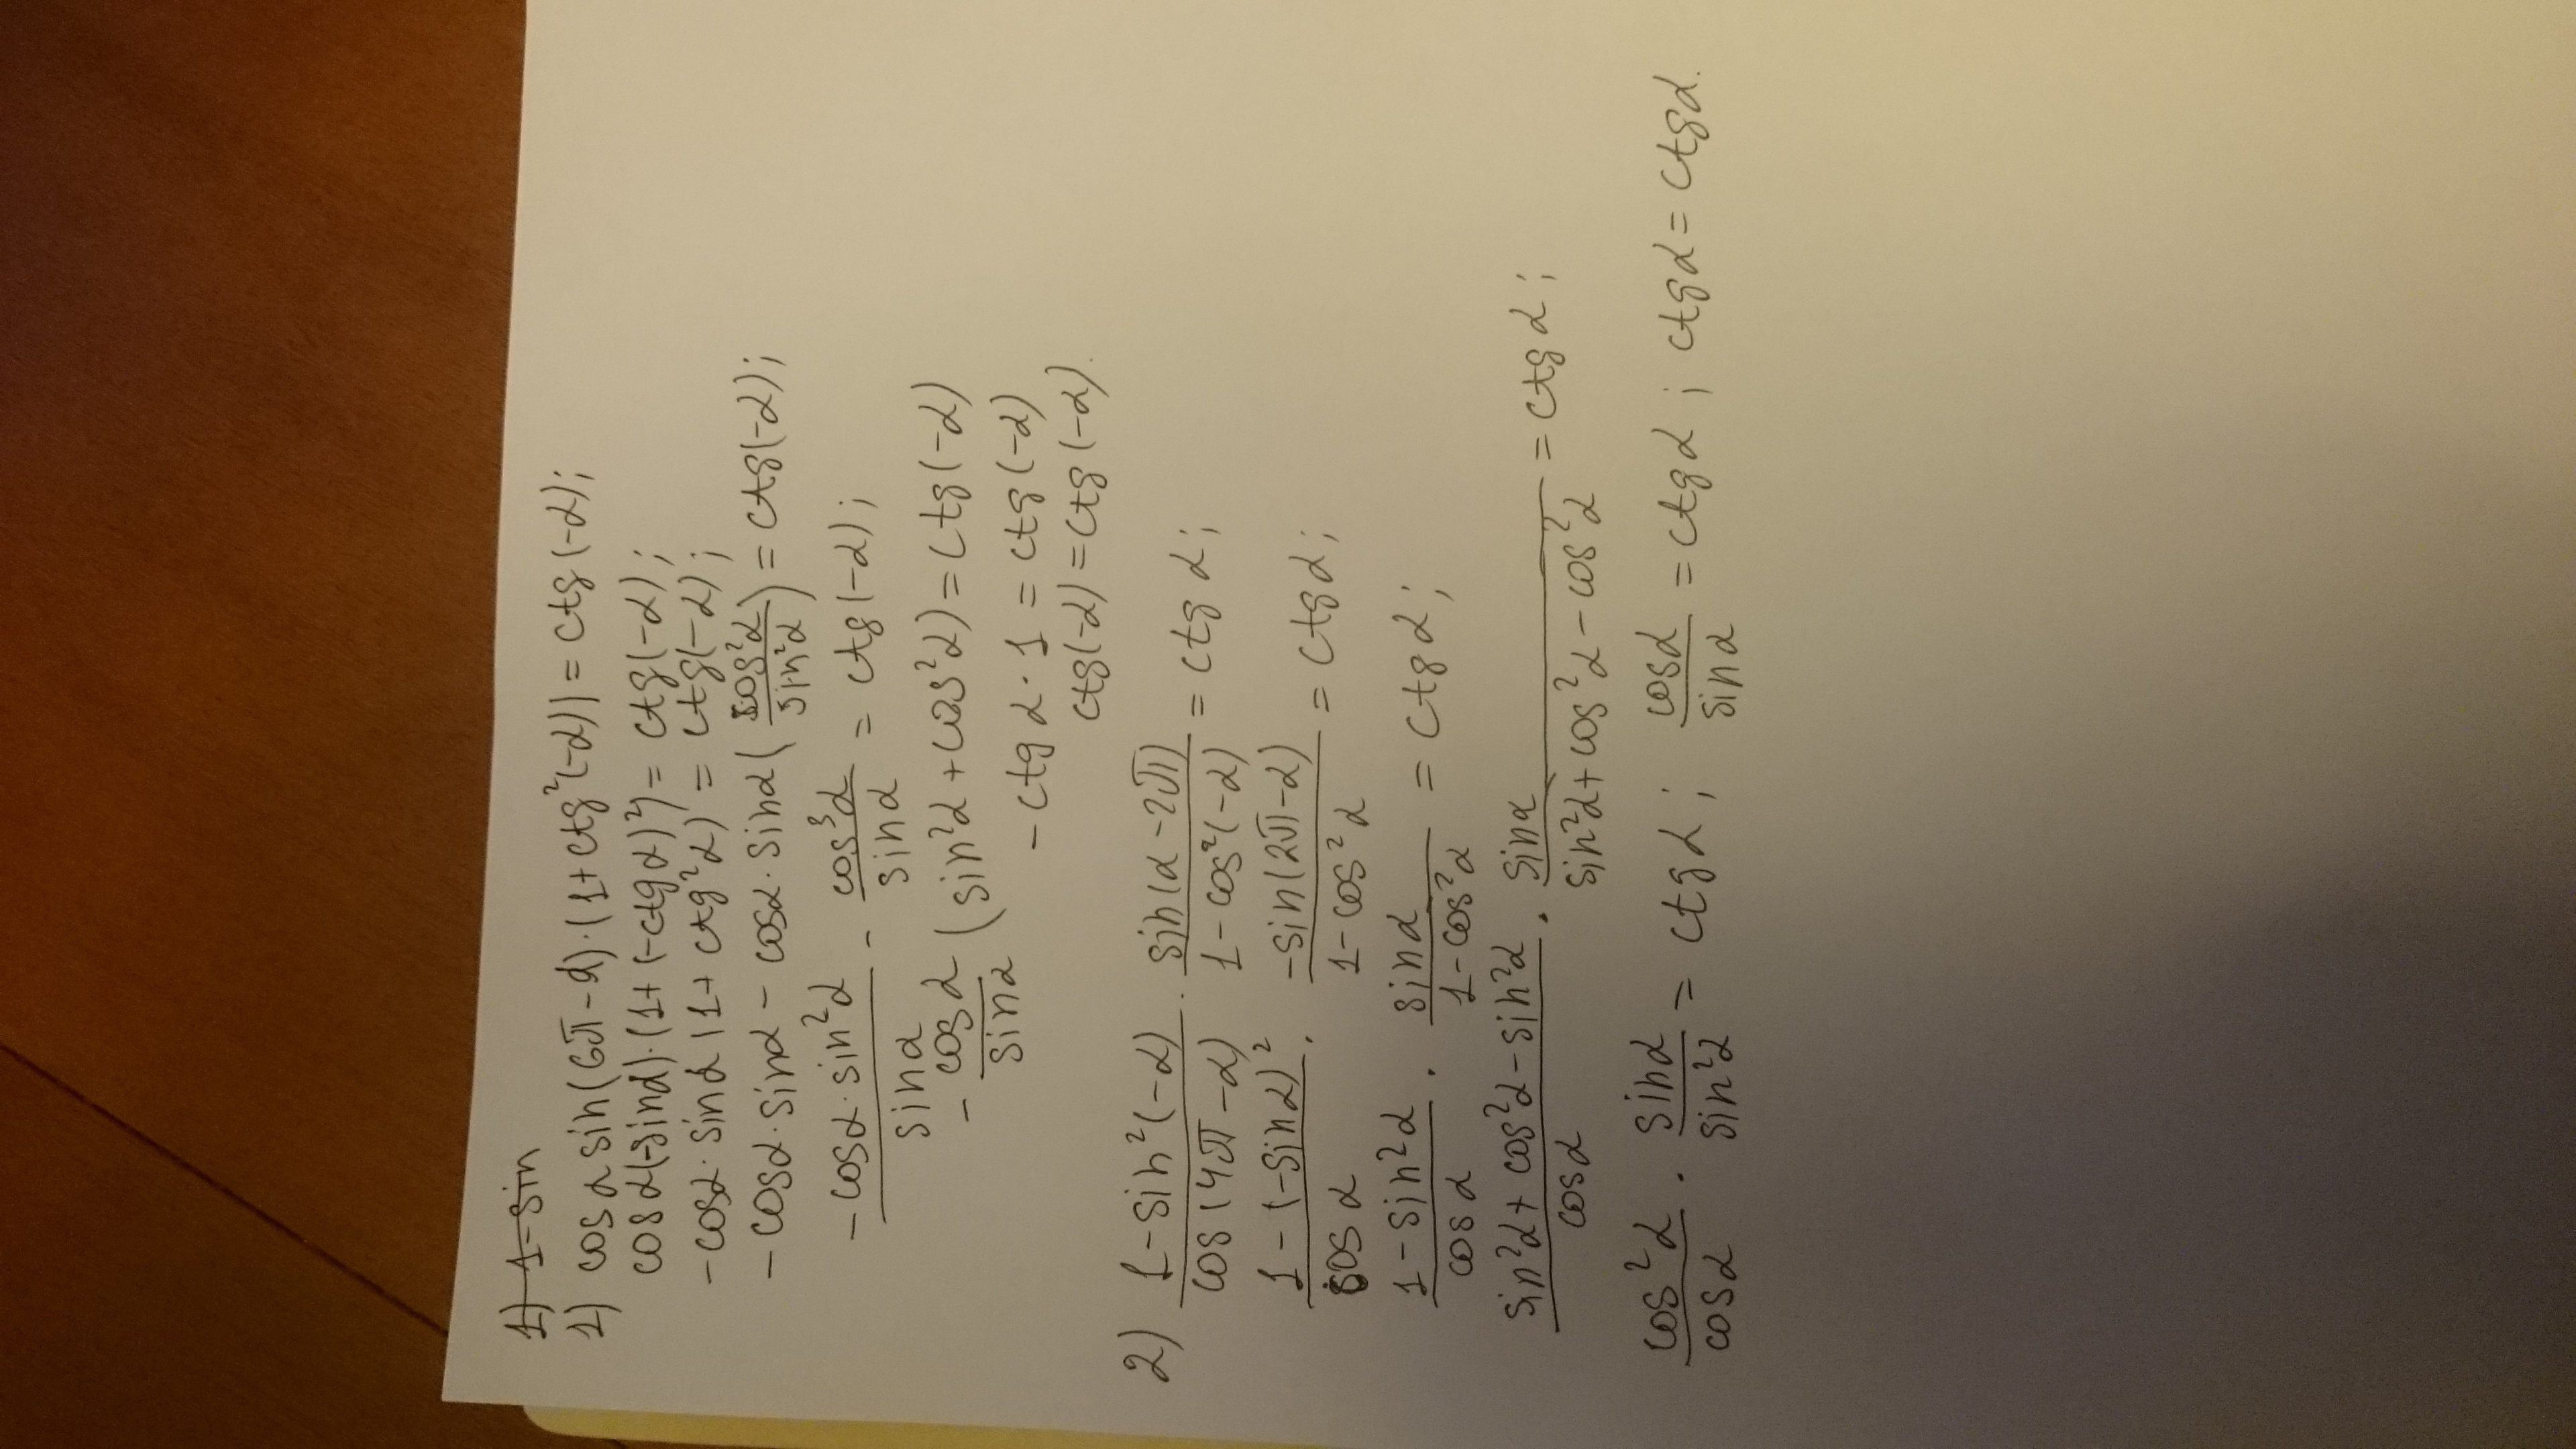 1) 1-sin
1) cos α sin(6π-α)·(1+ctg²(-α)) = ctg(-α);
cos α(-sinα)·(1+(-ctgα)²) = ctg(-α);
-cosα·sinα(1+ctg²α) = ctg(-α);
-cosα·sinα - cosα·sinα(cos²α/sin²α) = ctg(-α);
-cosα·sin²α/sinα - cos³α/sinα = ctg(-α);
-cosα/sinα (sin²α+cos²α) = ctg(-α)
-ctgα·1 = ctg(-α)
ctg(-α) = ctg(-α).
2) 1-sin²(-α)/cos(4π-α) · sin(α-2π)/1-cos²(-α) = ctg α;
1-(-sinα)²/cos α · -sin(2π-α)/1-cos²α = ctgα;
1-sin²α/cosα · sinα/1-cos²α = ctgα;
sin²α+cos²α-sin²α/cosα · sinα/sin²α+cos²α-cos²α = ctgα;
cos²α/cosα · sinα/sin²α = ctgα; cosα/sinα = ctgα; ctgα = ctgα.